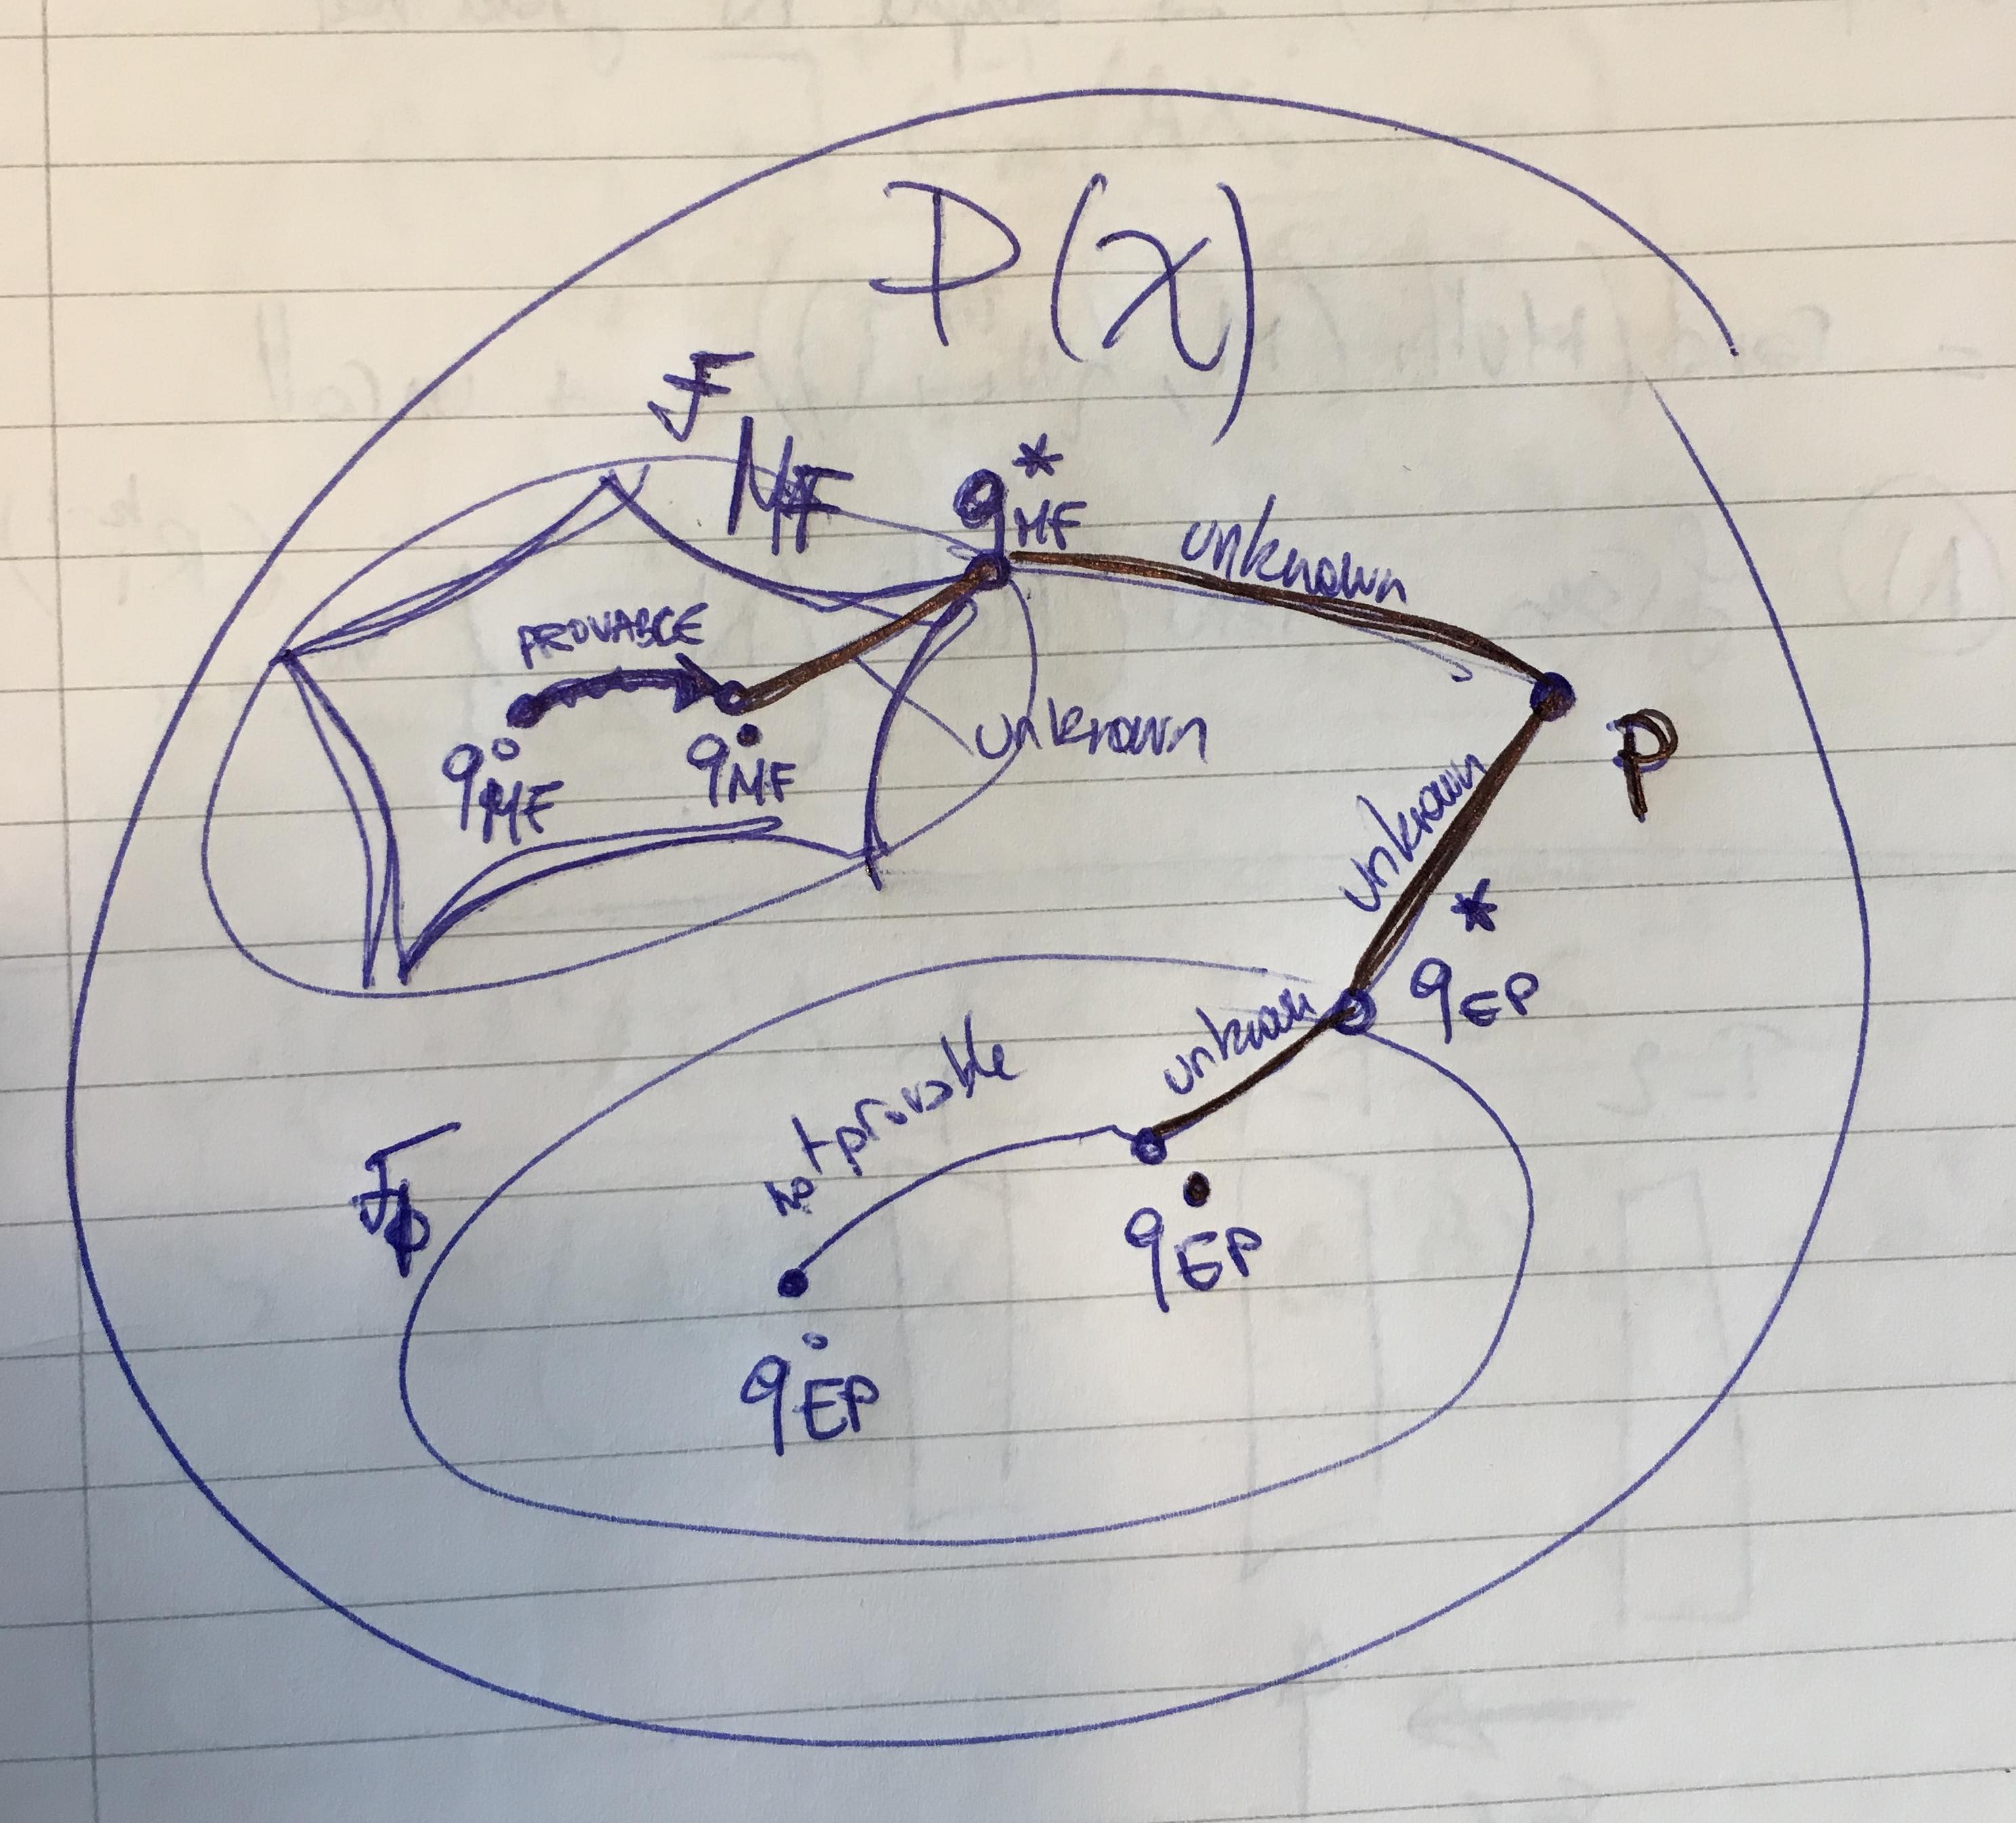 P(χ)
F MF
q*MF
unknown
PROVABLE
q°MF
q•MF
unknown
P
unknown
q*EP
unknown
not provable
Fφ
q•EP
q°EP